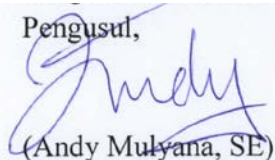 Pengusul,
Andy
(Andy Mulyana, SE)